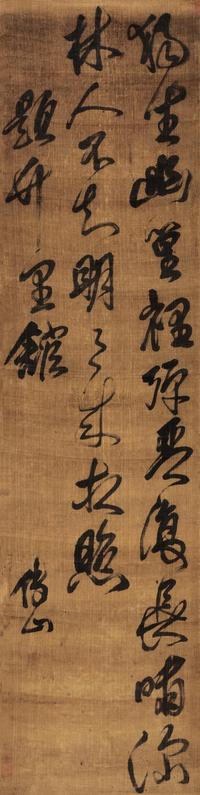 獨坐幽篁裡彈琴復長嘯深
林人不知明月來相照
題竹里館
傅山